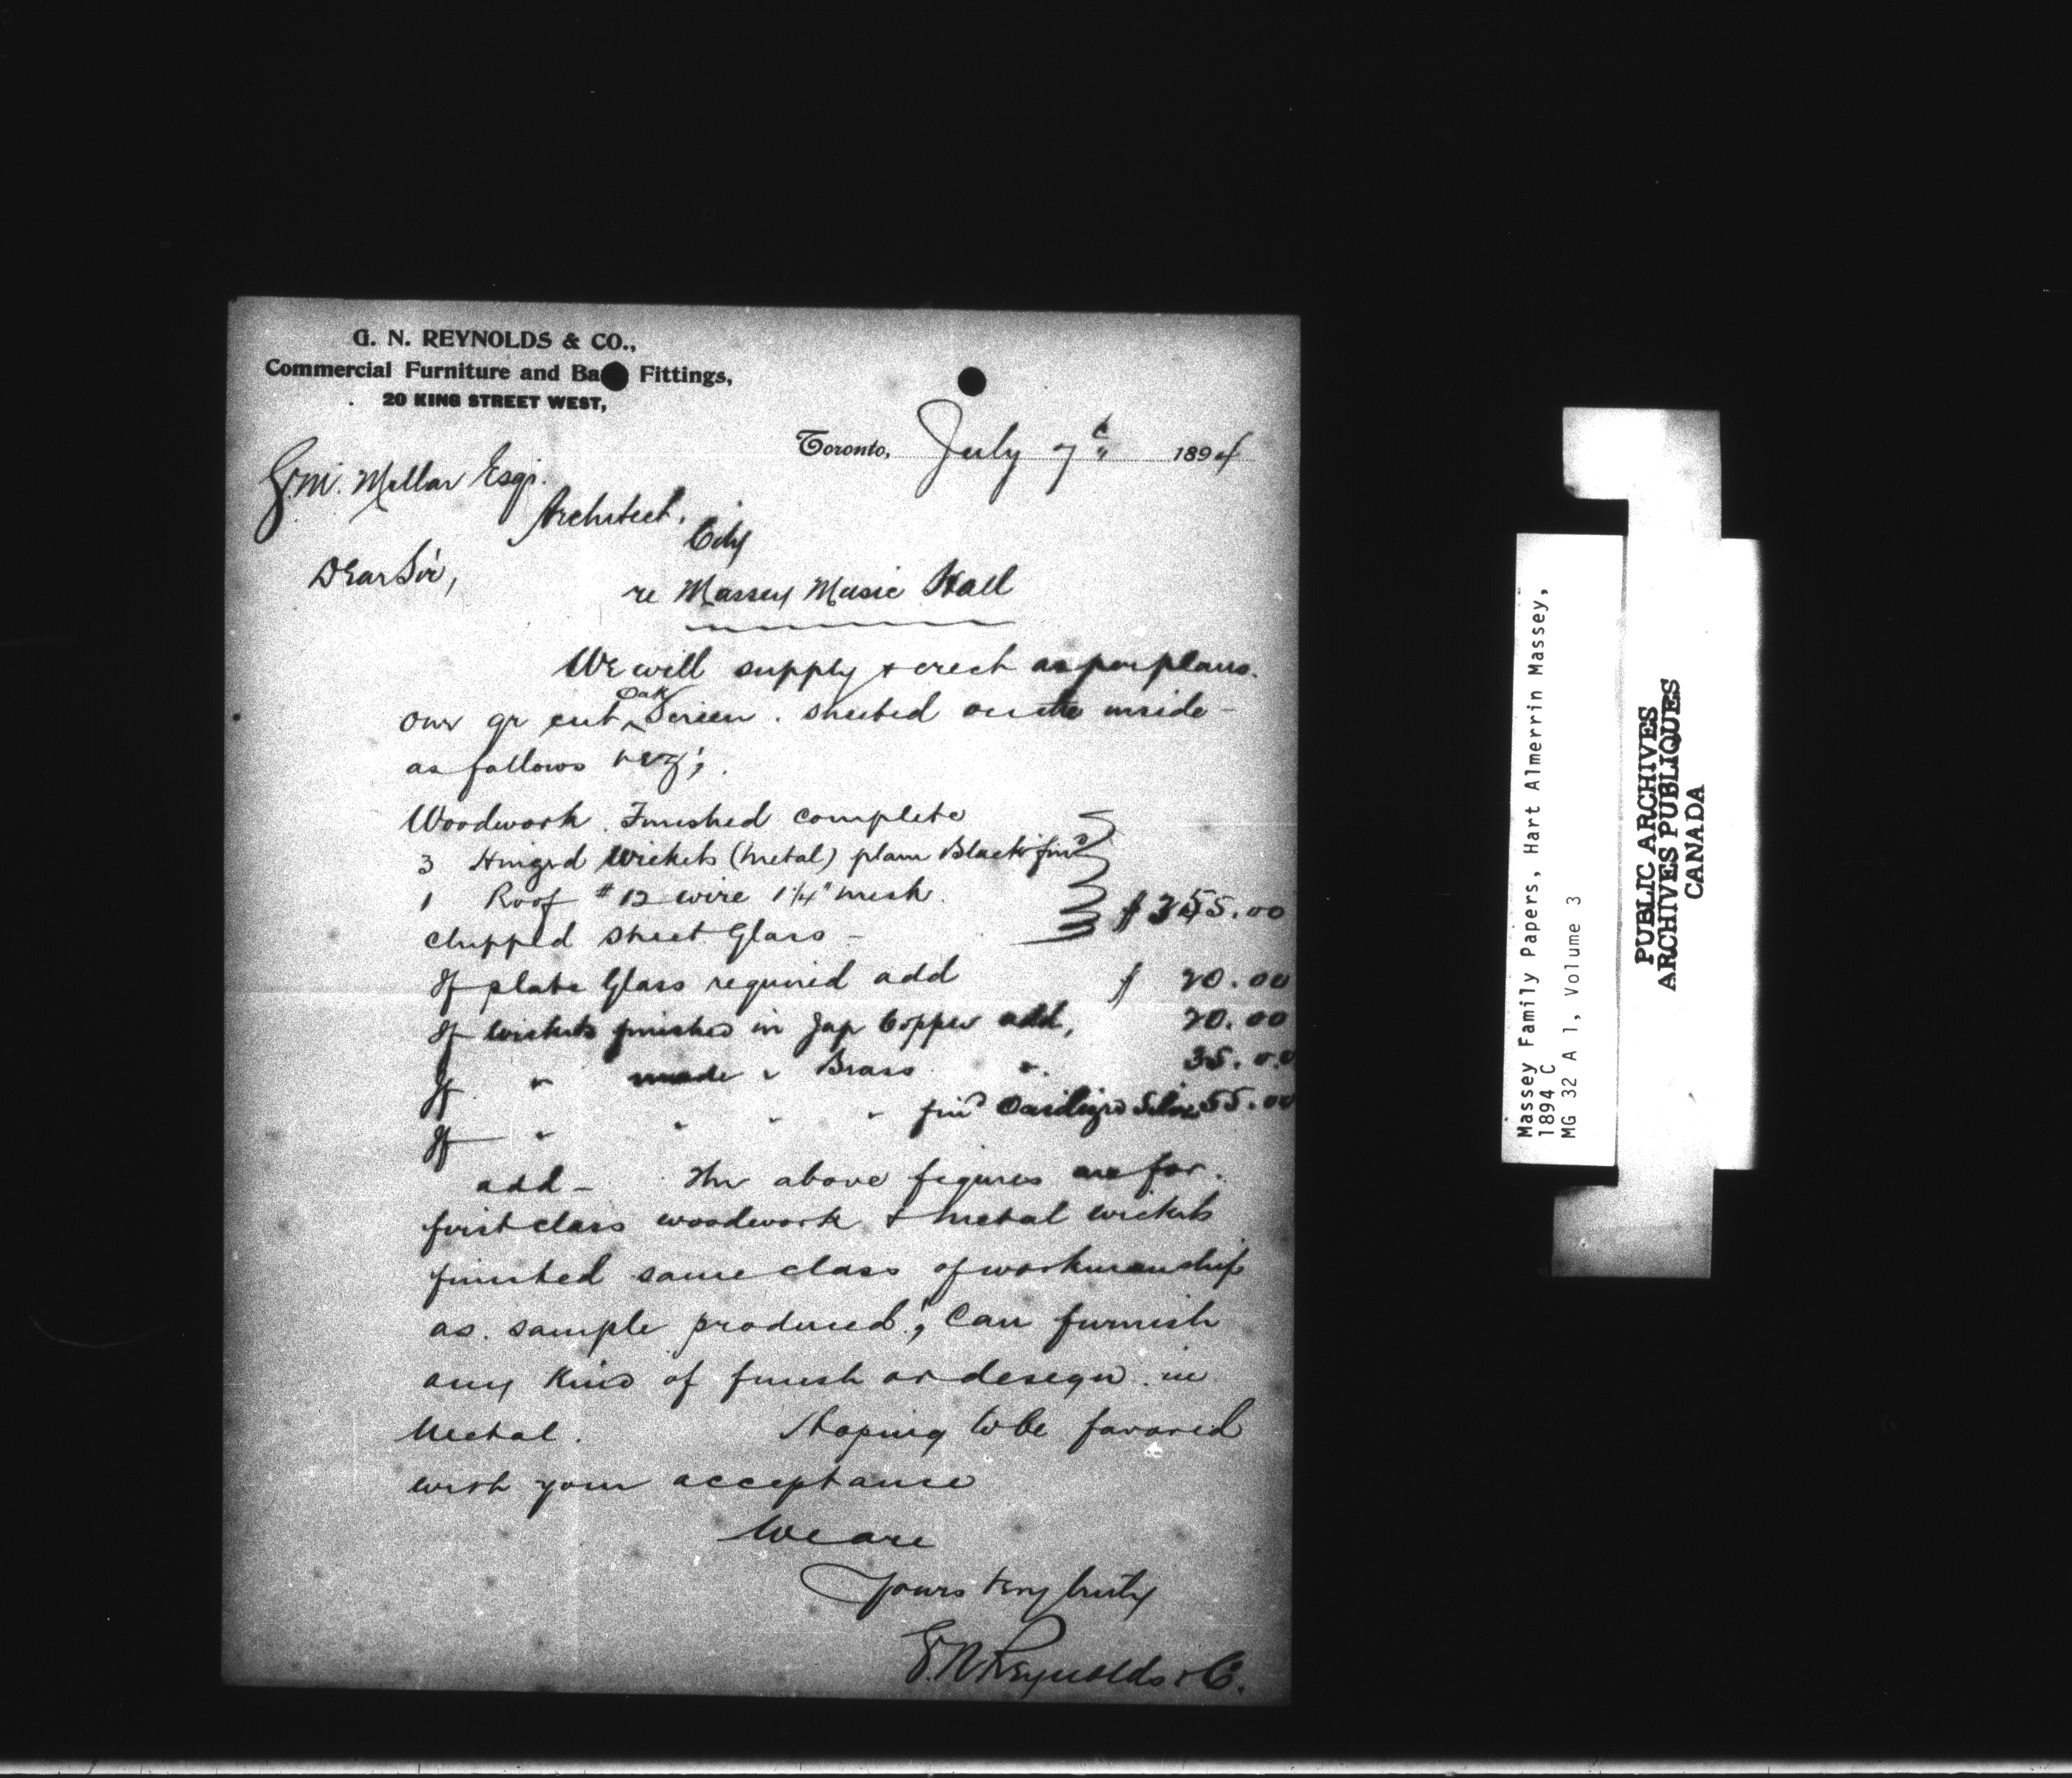 G. N. REYNOLDS & CO.,
Commercial Furniture and Ba Fittings,
20 KING STREET WEST,
Toronto, July 7th 1894
G.M. Mellar Esqr.
Architect.
City
Dear Sir,
re Massey Music Hall
We will supply & erect as per plans.
our qr cut Oak Screen. sheeted on the inside -
as follows viz;
Woodwork. Finished complete
3 Hinged Wickets (metal) plain Black find
1 Roof #12 wire 1 1/4" mesh.
Chipped sheet Glass - $ 55.00
If plate Glass required add $ 20.00
If wickets finished in Jap Copper add, 20.00
If " made " Brass ". 35.00
If " " " " find Oxidized Silver 55.00
add - The above figures are for.
first class woodwork & metal wickets
finished same class of workmanship
as. sample produced; Can furnish
any kind of finish or design in
Metal. Hoping to be favored
with your acceptance
We are
Yours Very truly
G. N Reynolds & Co.
Massey Family Papers, Hart Almerrin Massey,
1894 C
MG 32 A 1, Volume 3
PUBLIC ARCHIVES
ARCHIVES PUBLIQUES
CANADA